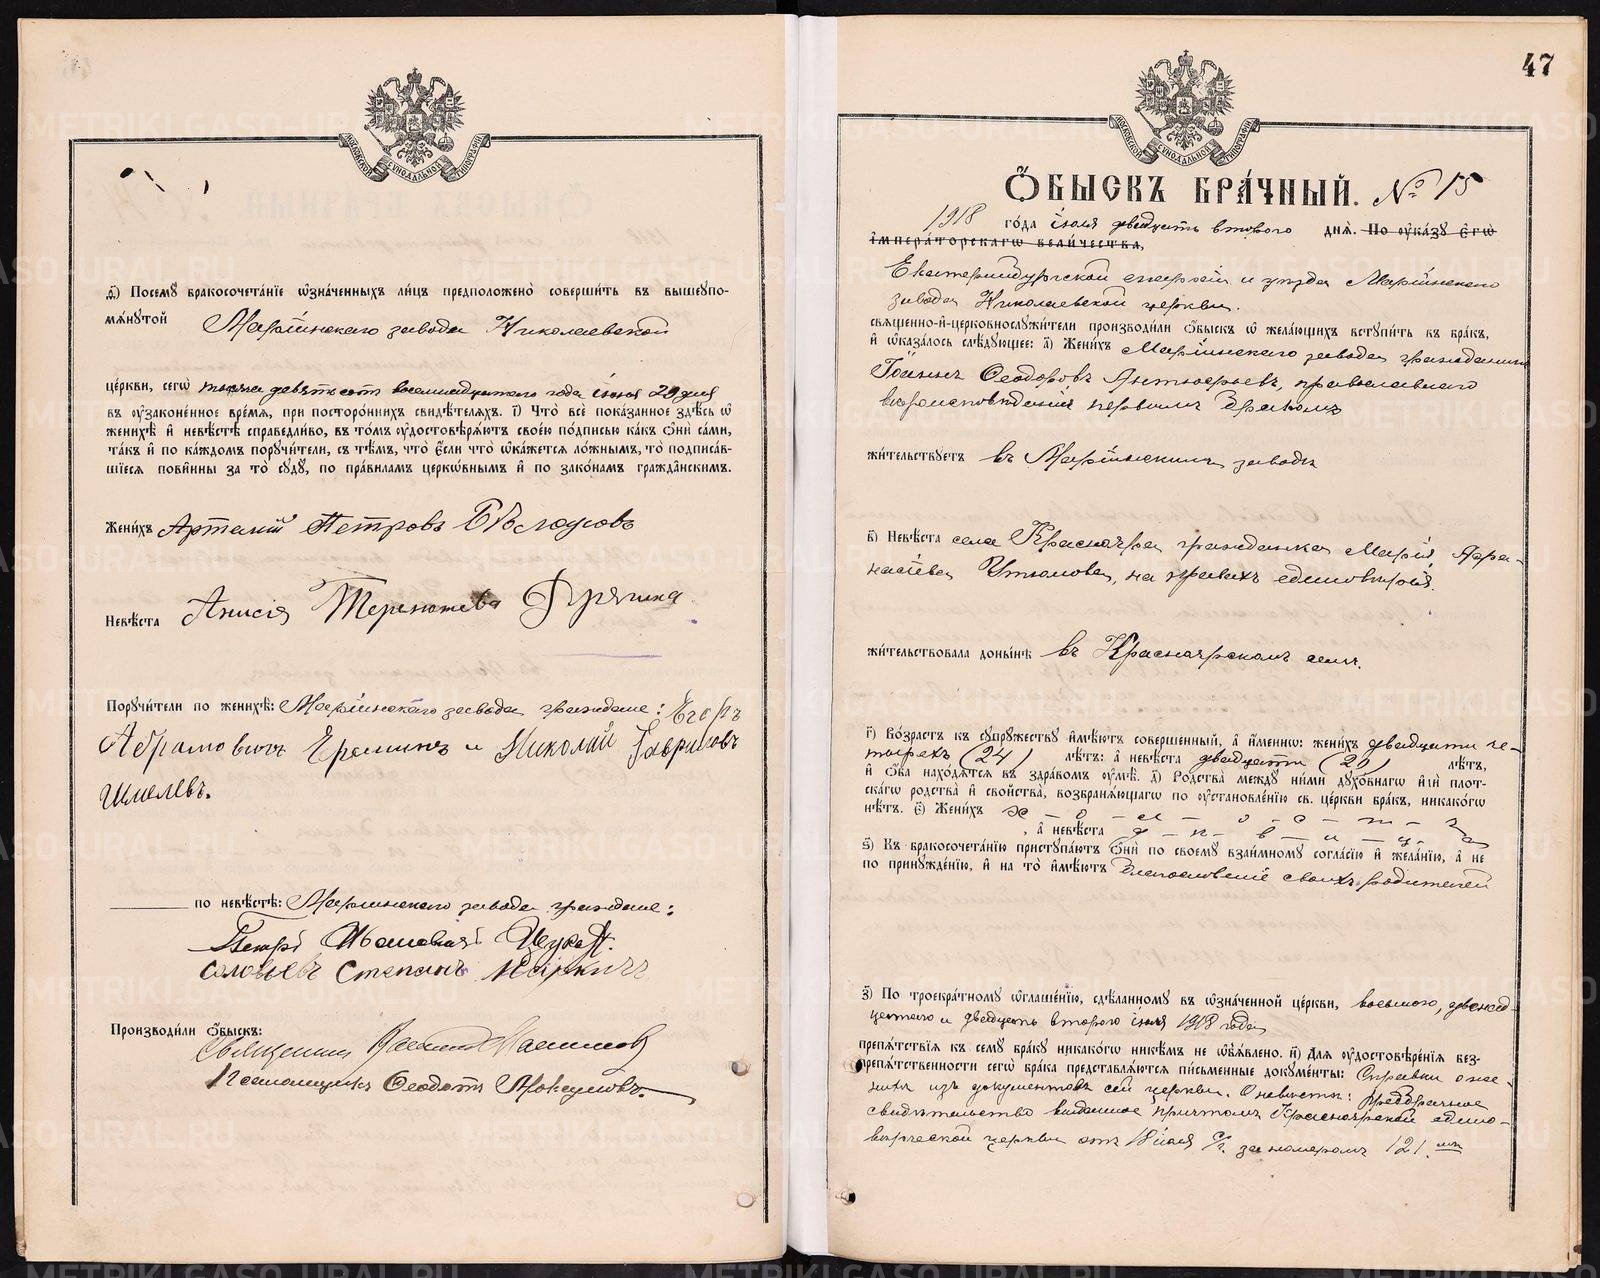 МОСКОВСКОЙ СѴНОДАЛЬНОЙ ТИПОГРАФІИ
д҃) Посемꙋ̀ бракосочета́нїе ѡ҆зна́ченныхъ ли́цъ предположено̀ соверши́ть въ вышеꙋпо-
мѧ́нꙋтой Маріинскаго завода Николаевской
це́ркви, сегѡ̀ тысяча девятьсот восемнадцатого года іюля 29 дня
въ ᲂу҆зако́ненное вре́мѧ, при посторо́ннихъ свидѣ́телѧхъ. і҃) Что̀ всѐ пока́занное здѣ́сь ѡ҆
женихѣ̀ и҆ невѣ́стѣ справедли́во, въ то́мъ ᲂу҆достовѣрѧ́ютъ свое́ю по́дписью ка́къ ѻ҆нѝ са́ми,
та́къ и҆ по ка́ждомъ порꙋчи́тели, съ тѣ́мъ, что̀ е҆́сли что̀ ѡ҆ка́жетсѧ ло́жнымъ, то̀ подписа́в-
шїесѧ пови́нны за то̀ сꙋдꙋ̀, по пра́виламъ церко́внымъ и҆ по зако́намъ гражда́нскимъ.
Жени́хъ Артемій Петровъ Бѣлоусовъ
Невѣ́ста Анисія Терентьева
Порꙋчи́тели по женихѣ̀: Маріинскаго завода граждане: Егоръ
Абрамовичъ Ереминъ и Николай Гавриловъ
Шмелевъ.
по невѣ́стѣ: Маріинскаго завода граждане:
Петръ Ивановичъ
Соловьевъ Степанъ Маркичъ
Производи́ли ѻ҆́быскъ:
Священникъ
Псаломщикъ Ѳеодотъ
47
МОСКОВСКОЙ СѴНОДАЛЬНОЙ ТИПОГРАФІИ
Ѻ҆́БЫСКЪ БРА́ЧНЫЙ. № 15
1918 го́да іюля двадцать второго днѧ̀. По ᲂу҆ка́зꙋ Е҆гѡ̀
И҆мпера́торскагѡ вели́чества,
Екатеринбургской епархіи и уѣзда Маріинскаго
завода Николаевской церкви.
свѧще́нно-и҆-церковнослꙋжи́тели производи́ли ѻ҆́быскъ ѡ҆ жела́ющихъ встꙋпи́ть въ бра́къ,
и҆ ѡ҆каза́лось слѣ́дꙋющее: а҃) Жени́хъ Маріинскаго завода гражданинъ
Іоаннъ Ѳеодоровъ Антюферьевъ, православнаго
вѣроисповѣданія первымъ бракомъ
жи́тельствꙋетъ въ Маріинскимъ заводѣ
в҃) Невѣ́ста села Красноярка гражданка Марія Афа-
насіева Утюмова, на правахъ единовѣрія.
жи́тельствовала доны́нѣ въ Красноярскомъ селѣ.
г҃) Во́зрастъ къ сꙋпрꙋ́жествꙋ и҆мѣ́ютъ соверше́нный, а҆ и҆́менно: жени́хъ двадцати че-
тырехъ (24) лѣ́тъ: а҆ невѣ́ста двадцати (20) лѣ́тъ,
и҆ ѻ҆́ба нахо́дѧтсѧ въ здра́вомъ ᲂу҆мѣ̀. д҃) Родства̀ междꙋ̀ ни́ми дꙋхо́внагѡ и҆лѝ пло́т-
скагѡ родства̀ и҆ сво́йства, возбранѧ́ющагѡ по ᲂу҆становле́нїю св. це́ркви бра́къ, никако́гѡ
нѣ́тъ. є҃) Жени́хъ х - о - л - о - с - т - ъ
, а҆ невѣ́ста д - ѣ - в - и - ц - а
ѕ҃) Къ бракосочета́нїю пристꙋпа́ютъ ѻ҆нѝ по своемꙋ̀ взаи́мномꙋ согла́сїю и҆ жела́нїю, а҆ не
по принꙋжде́нїю, и҆ на то̀ и҆мѣ́ютъ благословеніе своихъ родителей
з҃) По троекра́тномꙋ ѡ҆глаше́нїю, сдѣ́ланномꙋ въ ѡ҆зна́ченной це́ркви, восьмого, двенад-
цатаго и двадцать второго іюля 1918 года
препѧ́тствїѧ къ семꙋ̀ бра́кꙋ никако́гѡ никѣ́мъ не ѡ҆б̾ѧ́влено. и҃) Длѧ̀ ᲂу҆достовѣре́нїѧ без-
препѧ́тственности сегѡ̀ бра́ка представлѧ́ютсѧ пи́сьменные докꙋме́нты: Справки о же-
нихѣ изъ документовъ сей церкви. О невѣстѣ: предбрачное
свидѣтельство выданное причтомъ Красноярской едино-
вѣрческой церкви отъ 18 іюля с/г. за номеромъ 121.